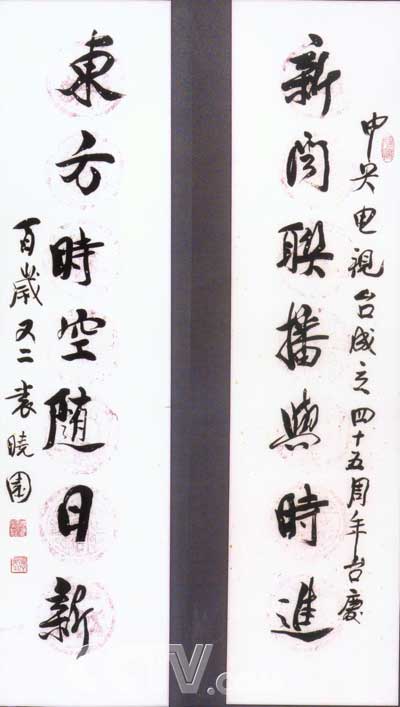 中央电視台成立四十五周年台慶
新聞聯播與時進
東方時空随日新
百歲又二 袁曉園